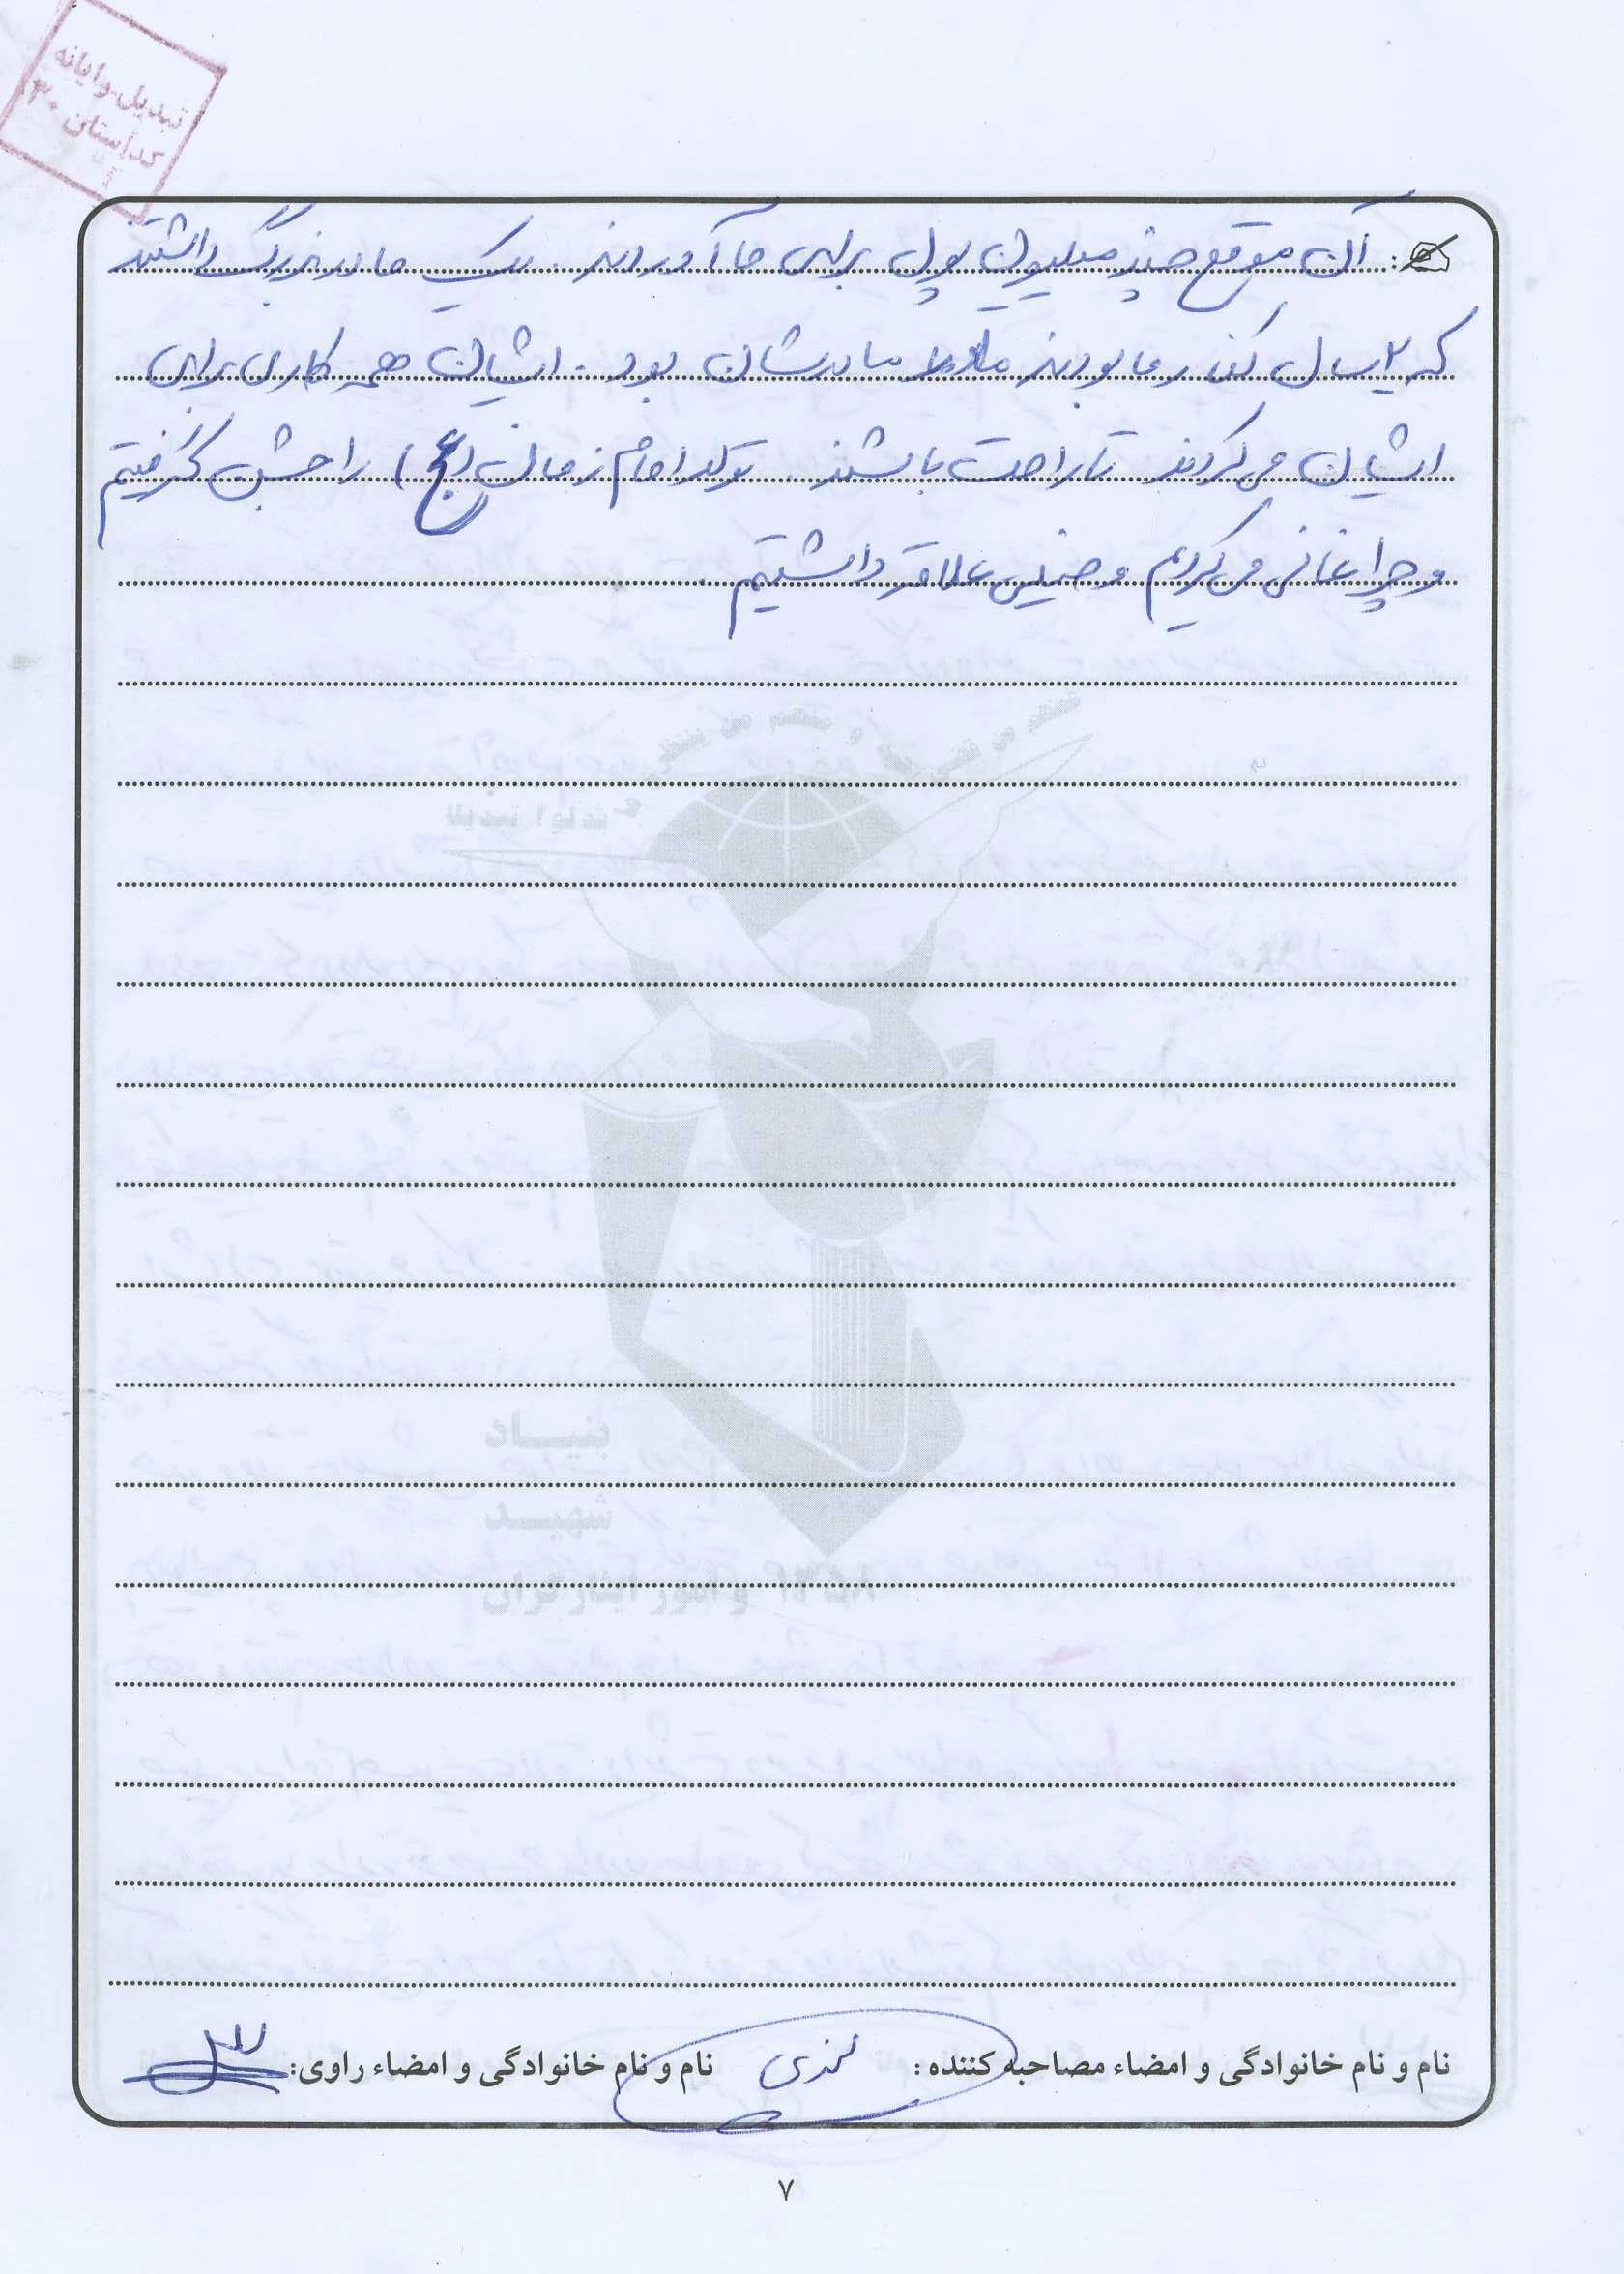 تبدیل وایانه
کد استان ۳۰
آن موقع چند میلیون پول برای ما آوردند. یک مادربزرگ داشتند
که ۲ سال بودند مادر مادرشان بود. ایشان همه کاری برای
ایشان می‌کردند تا راحت باشند. تولد امام زمان (عج) را جشن گرفتیم
و چراغانی می‌کردیم و خیلی علاقه داشتیم.
بنیاد
شهید
و امور ایثارگران ۱۳۵۸
نام و نام خانوادگی و امضاء مصاحبه کننده: نام و نام خانوادگی و امضاء راوی:
۷